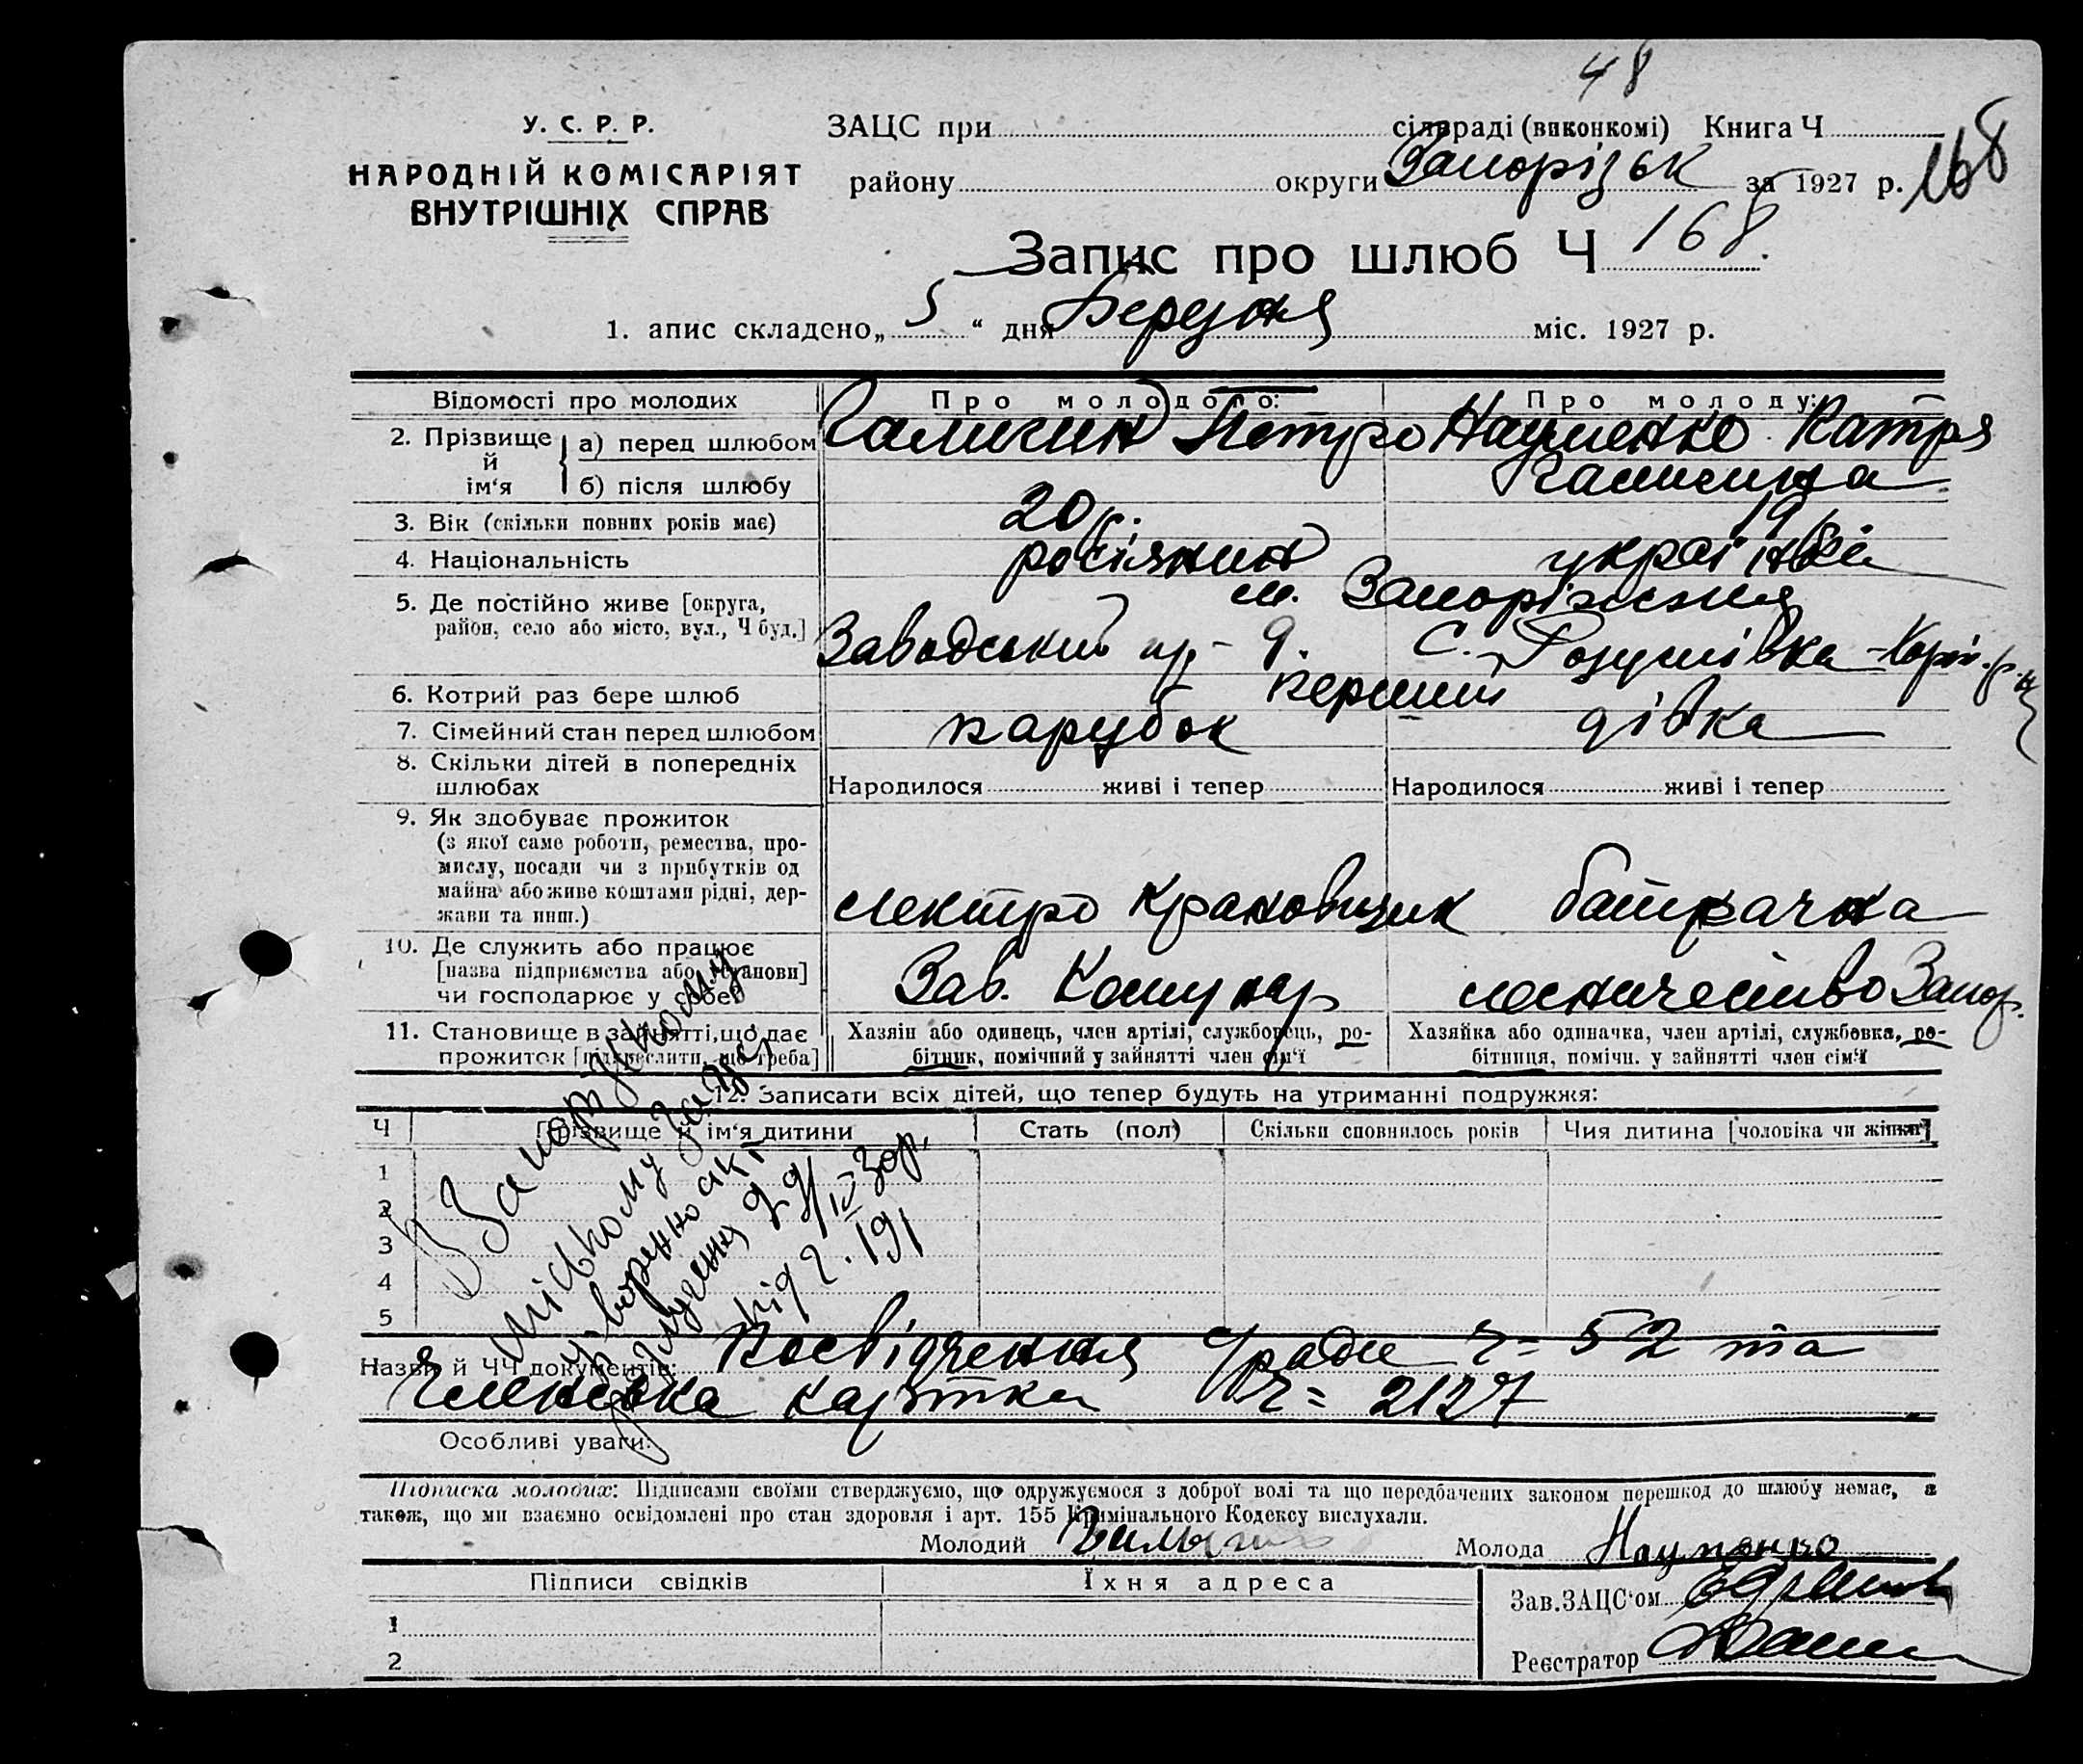 48
У. С. Р. Р.
НАРОДНІЙ КОМІСАРІЯТ
ВНУТРІШНІХ СПРАВ
ЗАЦС при сільраді (виконкомі) Книга Ч
району округи Запорізьк за 1927 р. 168
Запис про шлюб Ч 168.
1. апис складено „ 5 “ дня Березня міс. 1927 р.
Відомості про молодих Про молодого: Про молоду:
2. Прізвище й ім‘я а) перед шлюбом Галигин Петро Науменко Катря
б) після шлюбу Галигина
3. Вік (скільки повних років має) 20 р. 19
4. Національність росіянин українка
5. Де постійно живе [округа, район, село або місто, вул., Ч буд.] м. Запоріжжя
Заводський 9. С. Розумівка
6. Котрий раз бере шлюб перший
7. Сімейний стан перед шлюбом парубок дівка
8. Скільки дітей в попередніх шлюбах Народилося живі і тепер Народилося живі і тепер
9. Як здобуває прожиток
(з якої саме роботи, ремества, про-
мислу, посади чи з прибутків од
майна або живе коштами рідні, дер-
жави та инш.) електро крановщик батрачка
10. Де служить або працює
[назва підприємства або установи]
чи господарює у себе Зав. Комунар лесничейство Запор.
11. Становище в зайнятті, що дає Хазяін або одинець, член артілі, службовець, ро- Хазяйка або одиначка, член артілі, службовка, ро-
прожиток [підкреслити, що треба] бітник, помічний у зайнятті член сім‘ї бітниця, помічн. у зайнятті член сім‘ї
12. Записати всіх дітей, що тепер будуть на утриманні подружжя:
Ч Прізвище й ім‘я дитини Стать (пол) Скільки сповнилось років Чия дитина [чоловіка чи жінки]
1
2
3
4
5
В Запорізькому
міському Загсі
утворенно акт
розлучення 29/IV 30р.
під ч. 191
Назви й ЧЧ документів: Посвідчення С/ради ч= 52 та
членська картка ч= 2127
Особливі уваги:
Підписка молодих: Підписами своїми стверджуємо, що одружуємося з доброї волі та що передбачених законом перешкод до шлюбу немає, а
також, що ми взаємно освідомлені про стан здоровля і арт. 155 Кримінального Кодексу вислухали.
Молодий Молода Науменко
Підписи свідків Їхня адреса
Зав. ЗАЦС‘ом
1
2
Реєстратор